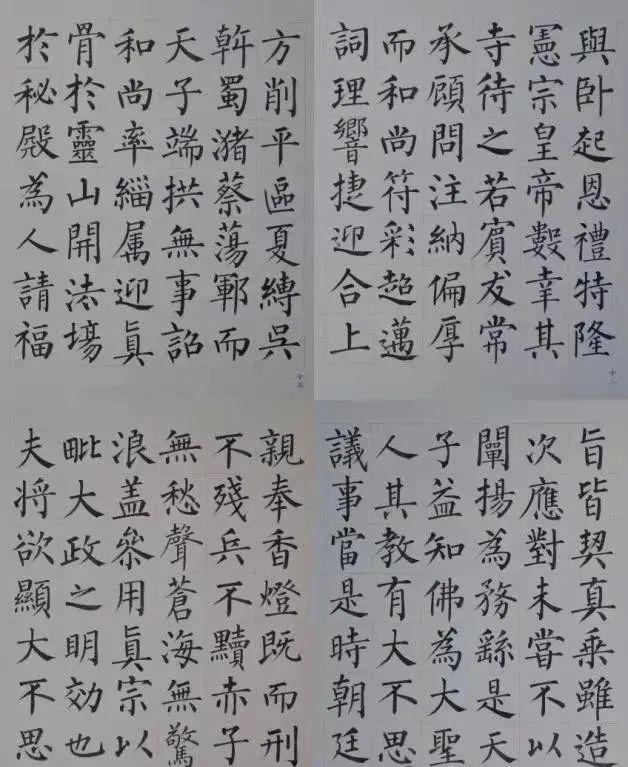 與卧起恩禮特隆
憲宗皇帝數幸其
寺待之若賓友常
承顧問注納偏厚
而和尚符彩超邁
詞理響捷迎合上
旨皆契真乘雖造
次應對未嘗不以
闡揚為務繇是天
子益知佛為大聖
人其教有大不思
議事當是時朝廷
方削平區夏縛吳
斡蜀潴蔡蕩鄆而
天子端拱無事詔
和尚率緇属迎真
骨於靈山開法場
於秘殿為人請福
親奉香燈既而刑
不殘兵不黷赤子
無愁聲蒼海無驚
浪盖參用真宗以
毗大政之明効也
夫將欲顯大不思